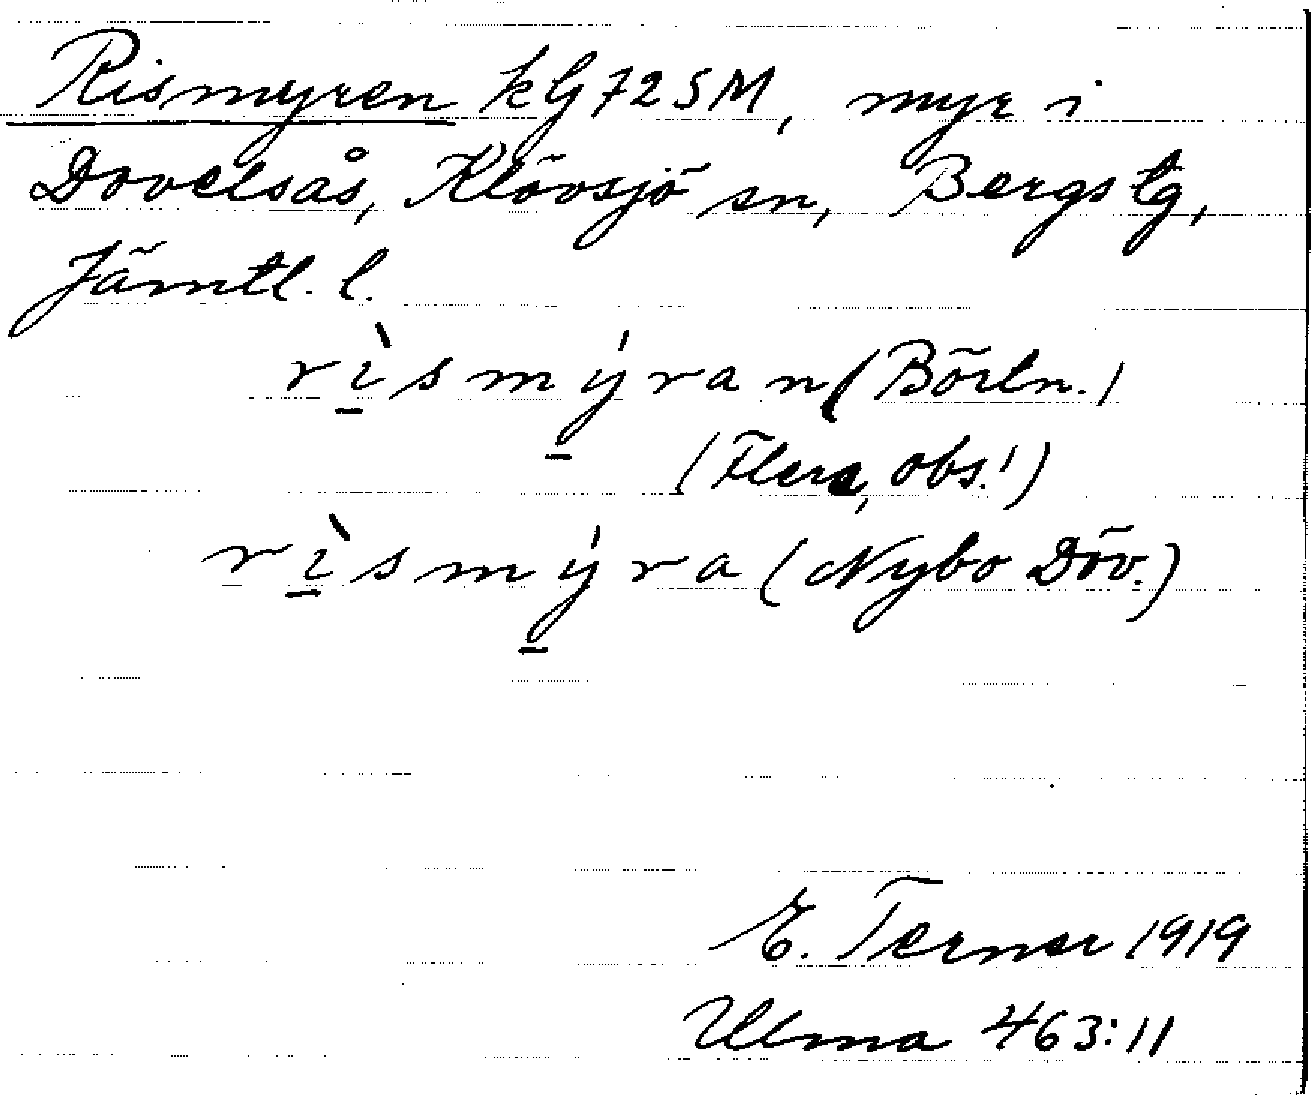 Rismyren kG725M, myr i
Dovelsås, Klövsjö sn, Bergs tg,
Jämtl. l.
rı̱̀smý̱ran (Börln.)
(Flera, obs.!)
rı̱̀smý̱ra (Nybo Döv.)
E. Terner 1919
Ulma 463:11